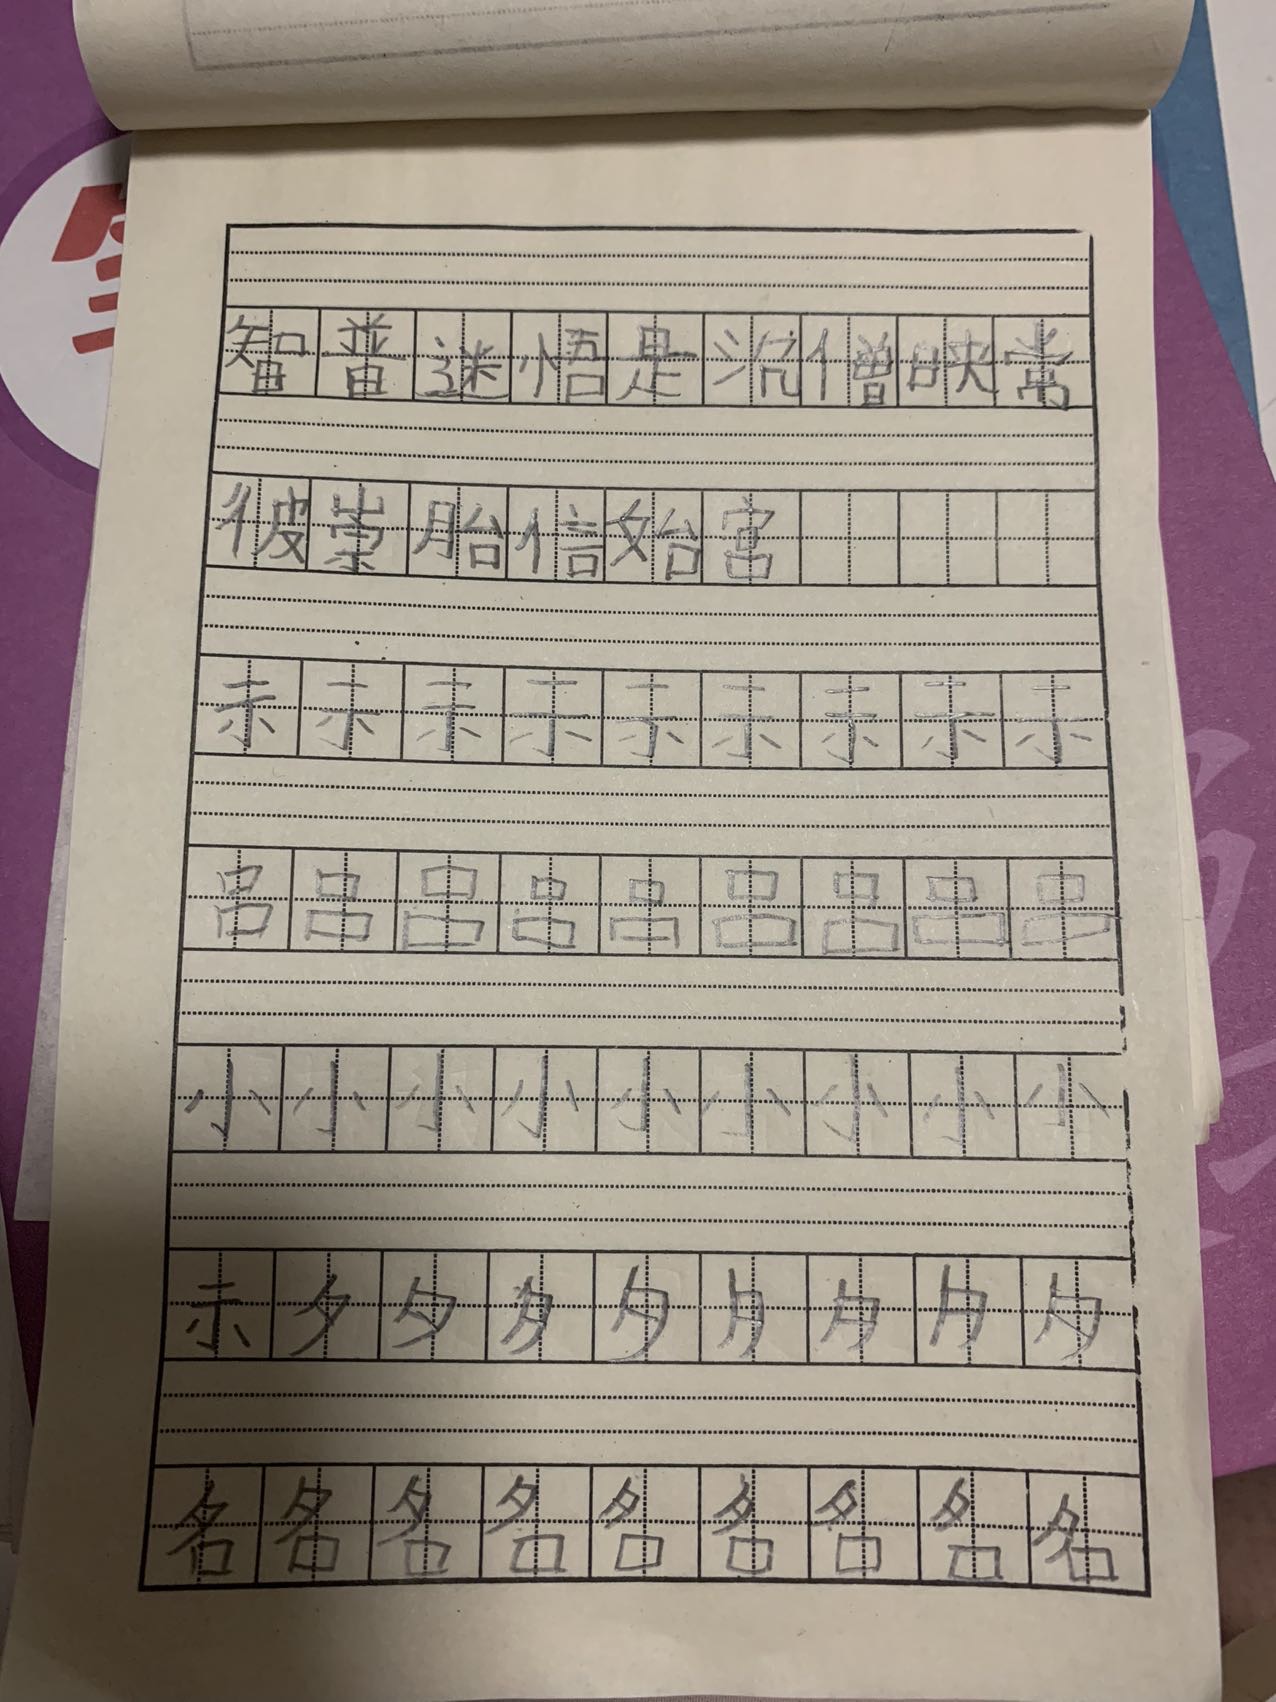 智普谜悟是沉僧映常
彼崇胎信始宫
示示示示示示示示示
吕吕吕吕吕吕吕吕吕
小小小小小小小小小
示夕夕夕夕夕夕夕夕
名名名名名名名名名